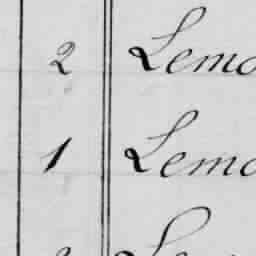 2 Lemo
1 Lemo